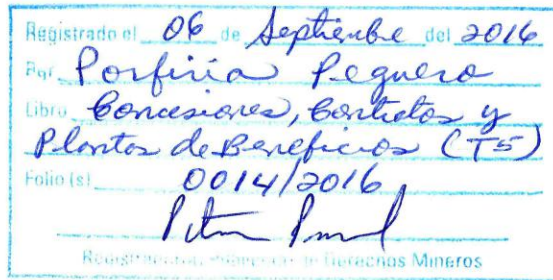 Registrado el 06 de Septiembre del 2016
Por Porfiria Peguero
Libro Concesiones, Contratos y
Plantas de Beneficios (T5)
Folio (s) 0014/2016
Derechos Mineros